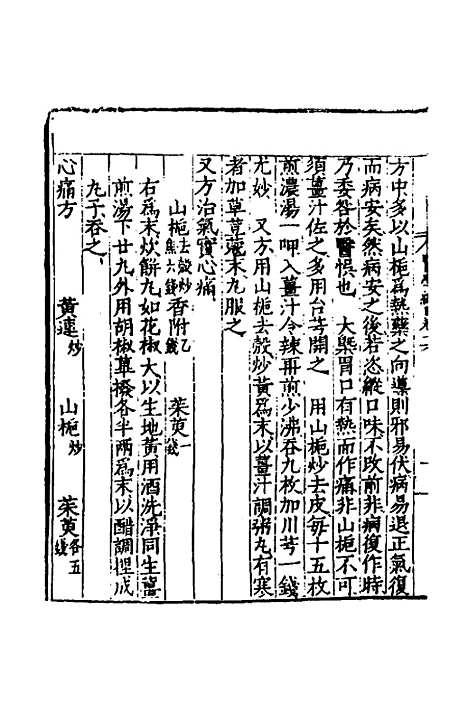 方中多以山梔爲熱藥之向導則邪易伏病易退正氣復
而病安矣然病安之後若恣縱口味不改前非病復作時
乃委咎於醫悞也　大槩胃口有熱而作痛非山梔不可
須薑汁佐之多用台芎開之　用山梔炒去皮每十五枚
煎濃湯一呷入薑汁令辣再煎少沸吞九枚加川芎一錢
尤妙　又方用山梔去殼炒黃爲末以薑汁調粥丸有寒
者加草荳蔲末丸服之
又方治氣實心痛
山梔去殼炒焦六錢　香附乙錢　茱萸一錢
右爲末炊餅丸如花椒大以生地黃用酒洗淨同生薑
煎湯下廿丸外用胡椒蓽撥各半兩爲末以醋調捏成
丸子吞之
心痛方　黃連炒　山梔炒　茱萸各五錢